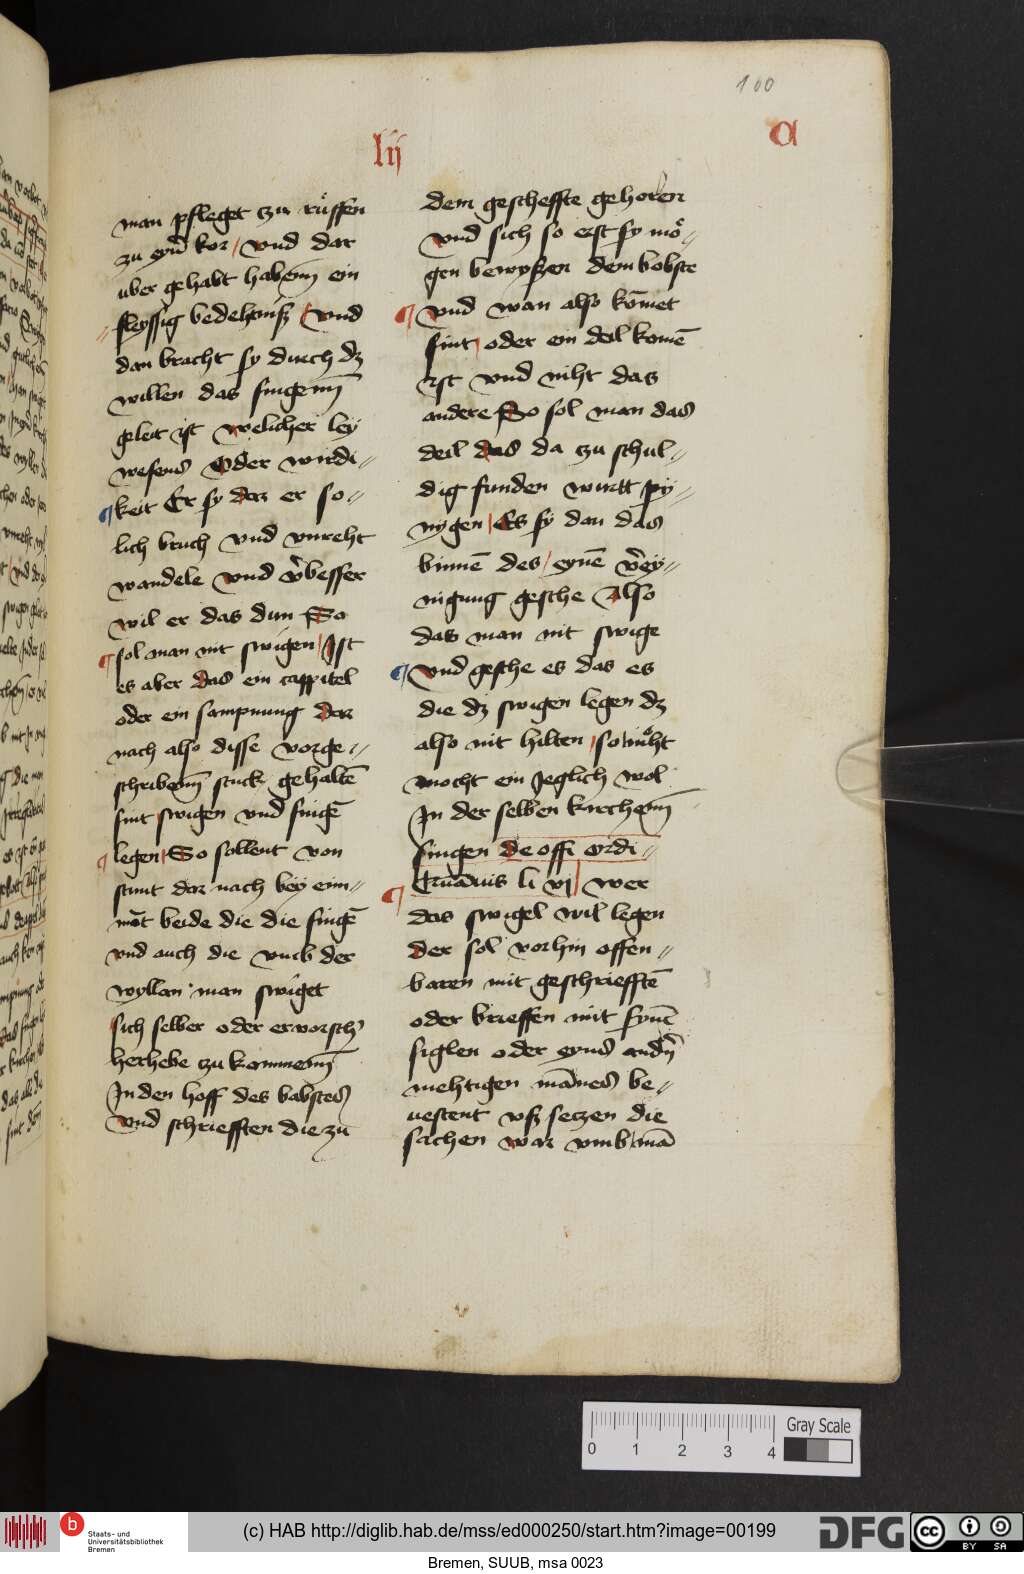 100
lij
a
man pfleget czu rüffen
zu eyn̄ kor / vnd dar
uber gehabt habenn̄ ein
fleyssig bedehniß / vnd
dan bracht sy durch dz
willen das singenn̄
geleit ist welicher ley
wesens Oder wirdi //
keit Er sy daz er so //
lich bruch vnd vnreht
wandele vnd v̄besser
wil er das dun So
sol man nit swigen / Ist
es aber das ein cappitel
oder ein sampnung daz
nach also disse vorge //
schribenn̄ stuck gehaltē
sint swigen vnd singē
legen / So sollent von
stunt dar nach bey eim //
mōt beide die die singē
vnd auch die vmb der
wyllan man swiget
sich selber oder erworsch
herhebe czu kommenn̄
In den hoff des babstes
vnd schriefften die zu
dem gescheffte gehoren
vnd sich so erst sy mö //
gen bewyßen dem bobste
vnd wan also kōmet
sint / oder ein deil komē
ist vnd niht das
andere So sol man das
deil das da czu schul //
dig funden wurtt py //
nygen / Es sy dan das
binnē des / eynē v̄ey //
nigung gesche Also
das man nit swige
vnd gesche es das es
die dz swigen legen dz
also nit hilten / so möht
mocht ein Jeglich wol
In der selben kirchenn̄
singen de offi ordi //
li vj / wer
das swigel wil legen
der sol vorhin offen //
baren mit geschriefftē
oder brieffen mit synē
siglen oder eyns andn̄
mehtigen mānes be //
uestent vß seczen die
sachen war vmb mā
0 1 2 3 4
Gray Scale
b
Staats- und
Universitätsbibliothek
Bremen
(c) HAB http://diglib.hab.de/mss/ed000250/start.htm?image=00199
DFG
cc
BY SA
Bremen, SUUB, msa 0023